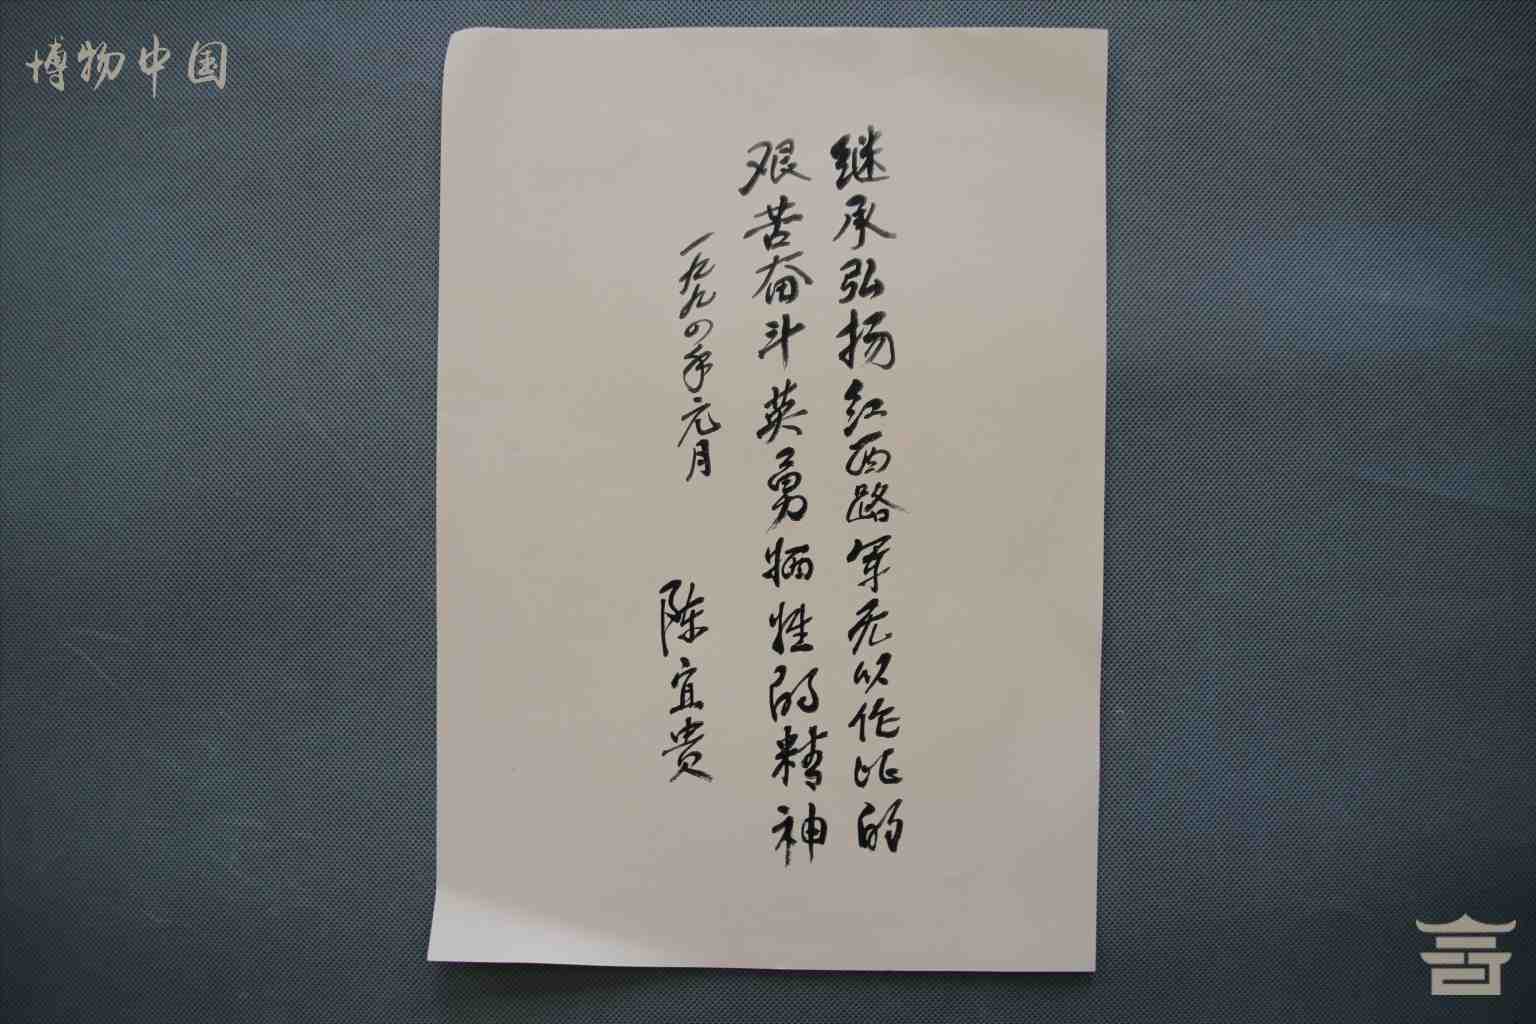 博物中国
继承弘扬红西路军无以作比的
艰苦奋斗英勇牺牲的精神
一九九四年元月
陈宜贵